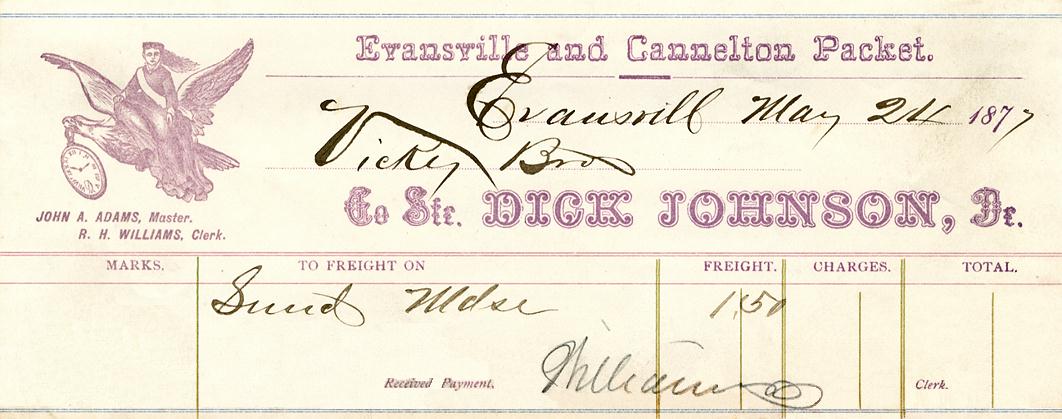 Evansville and Cannelton Packet.
Evansvill May 24 1877
Vickey Bros
To Str. DICK JOHNSON, Dr.
JOHN A. ADAMS, Master.
R. H. WILLIAMS, Clerk.
MARKS. TO FREIGHT ON FREIGHT. CHARGES. TOTAL.
Sund Mdse 1.50
Received Payment, Williams Clerk.